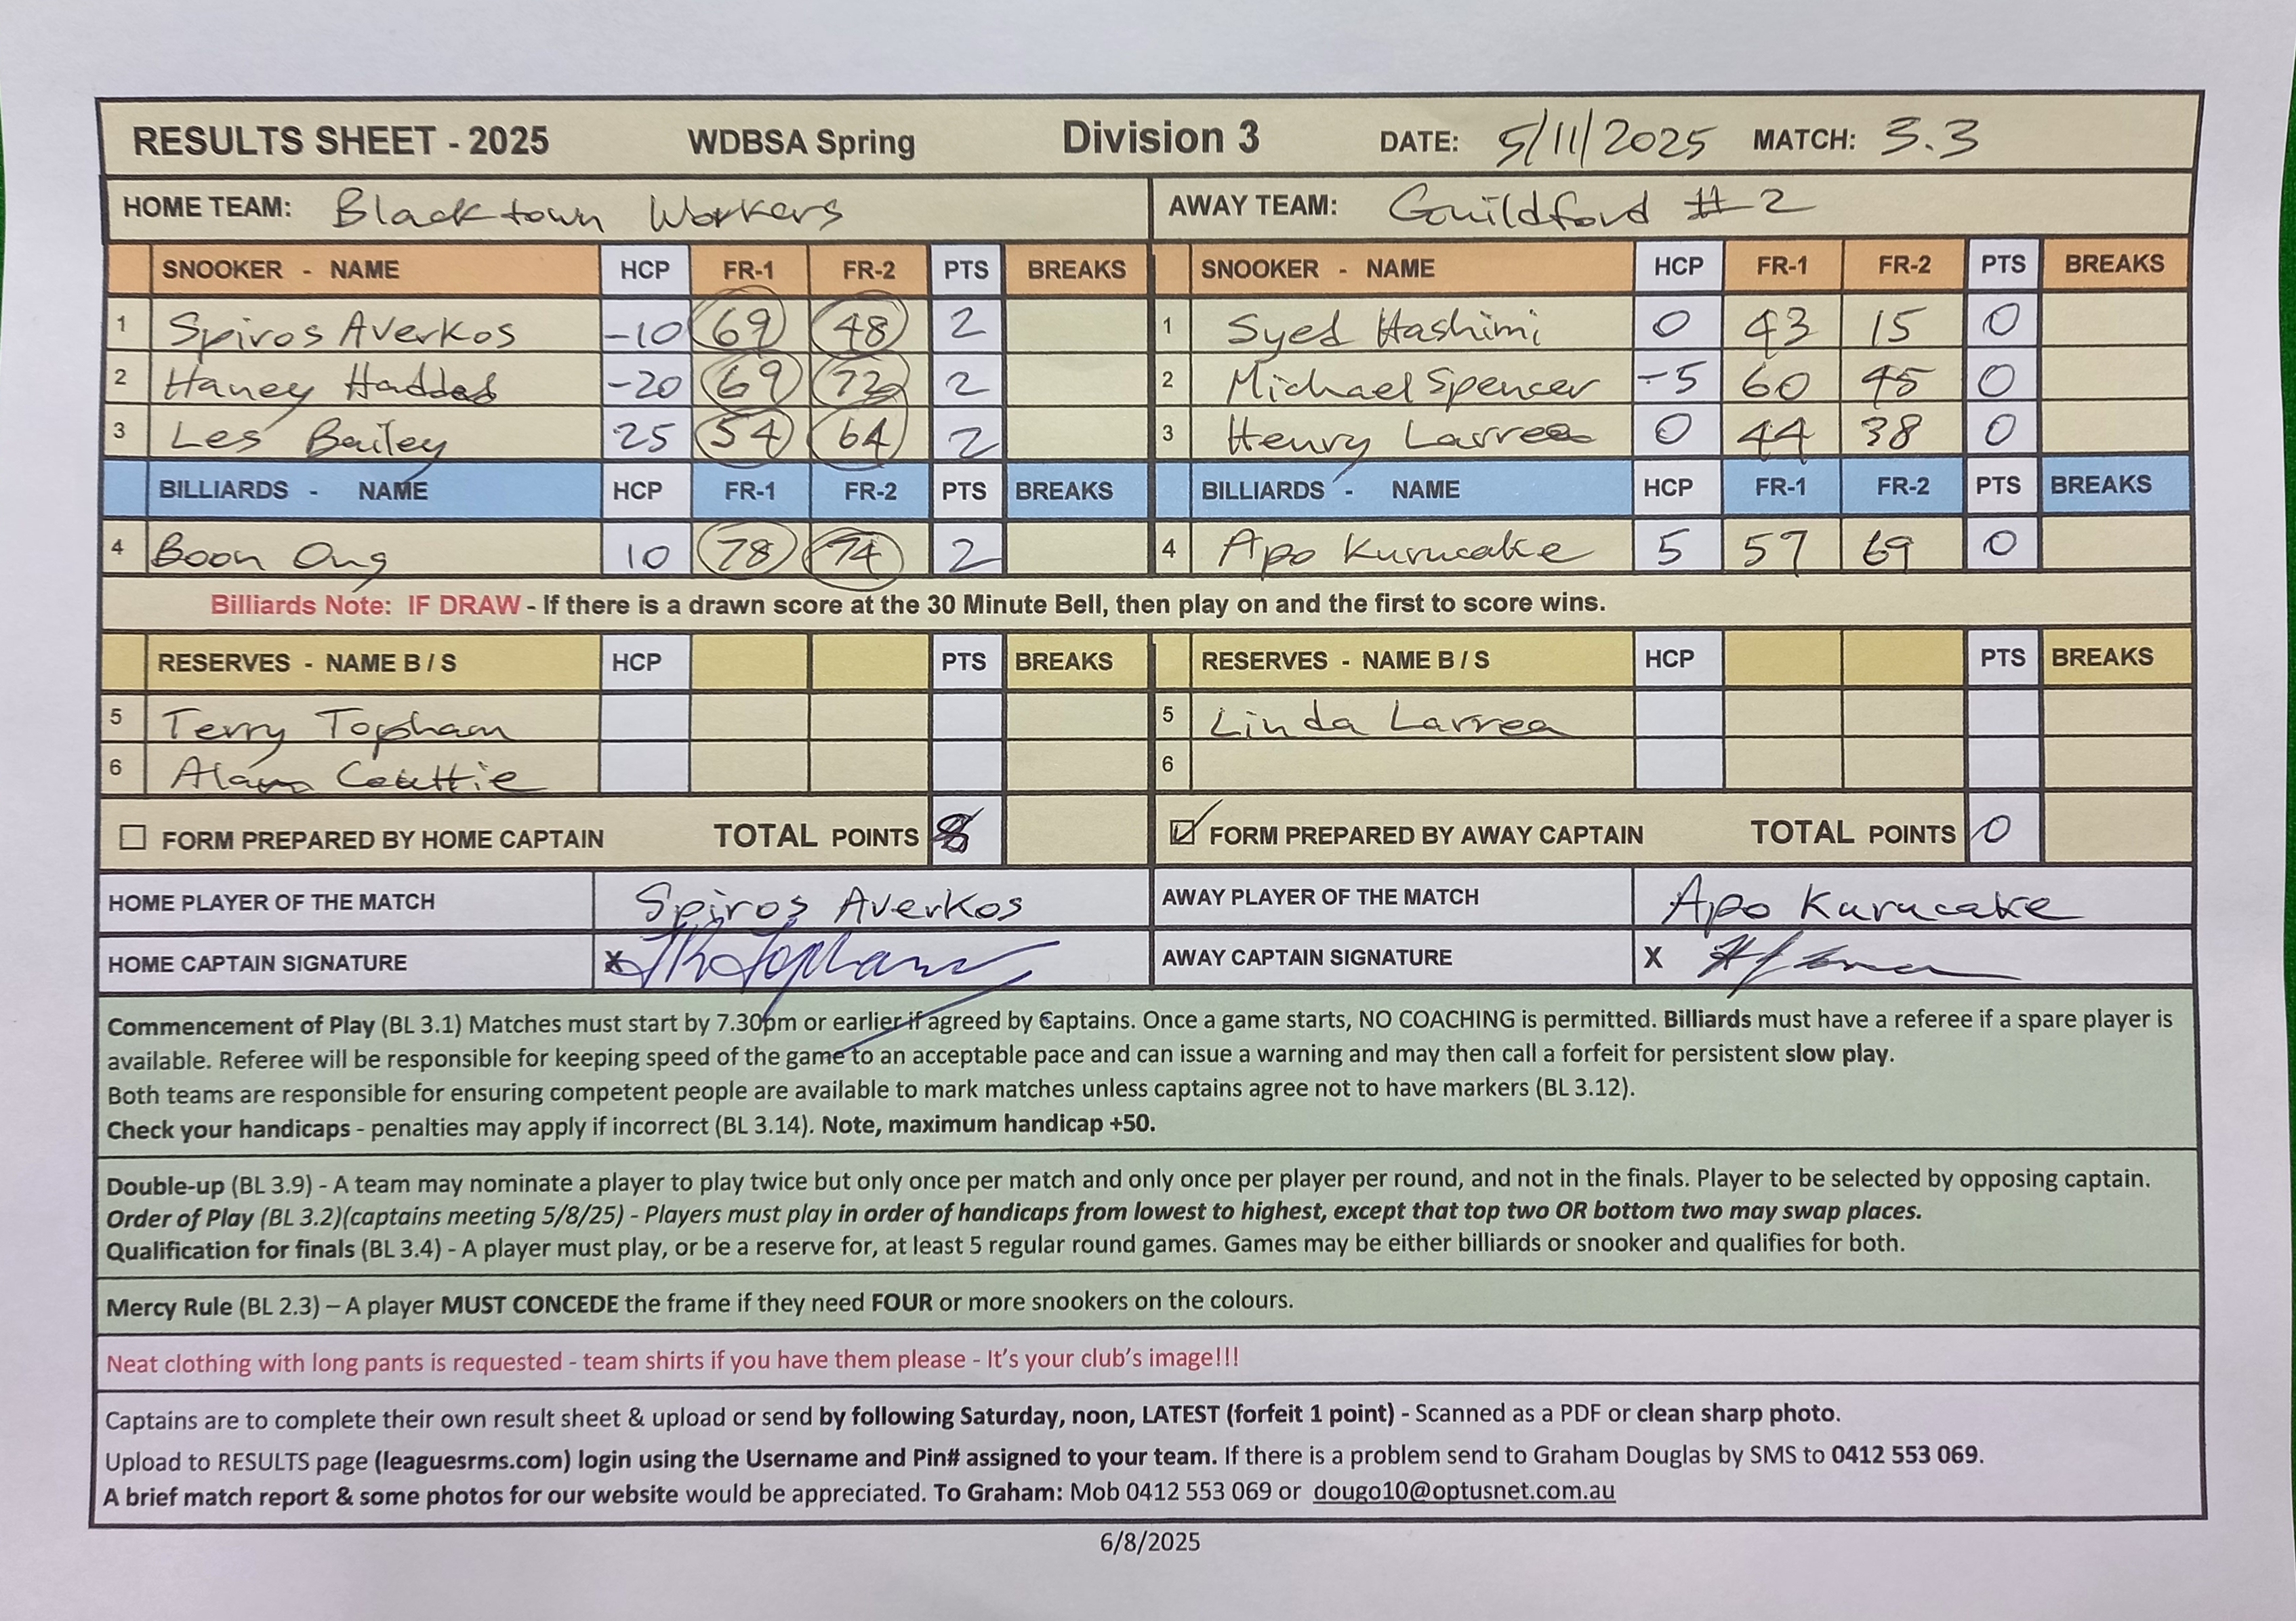 RESULTS SHEET - 2025 WDBSA Spring Division 3 DATE: 5/11/2025 MATCH: 3.3
HOME TEAM: Blacktown Workers AWAY TEAM: Guildford #2
SNOOKER - NAME HCP FR-1 FR-2 PTS BREAKS SNOOKER - NAME HCP FR-1 FR-2 PTS BREAKS
1 Spiros Averkos -10 69 48 2 1 Syed Hashimi 0 43 15 0
2 Haney Haddad -20 69 72 2 2 Michael Spencer -5 60 45 0
3 Les Bailey 25 54 64 2 3 Henry Larrea 0 44 38 0
BILLIARDS - NAME HCP FR-1 FR-2 PTS BREAKS BILLIARDS - NAME HCP FR-1 FR-2 PTS BREAKS
4 Boon Ong 10 78 74 2 4 Apo Kurucake 5 57 69 0
Billiards Note: IF DRAW - If there is a drawn score at the 30 Minute Bell, then play on and the first to score wins.
RESERVES - NAME B / S HCP PTS BREAKS RESERVES - NAME B / S HCP PTS BREAKS
5 Terry Topham 5 Linda Larrea
6 Alan 6
FORM PREPARED BY HOME CAPTAIN TOTAL POINTS 8 FORM PREPARED BY AWAY CAPTAIN TOTAL POINTS 0
HOME PLAYER OF THE MATCH Spiros Averkos AWAY PLAYER OF THE MATCH Apo Kurucake
HOME CAPTAIN SIGNATURE X AWAY CAPTAIN SIGNATURE X
Commencement of Play (BL 3.1) Matches must start by 7.30pm or earlier if agreed by Captains. Once a game starts, NO COACHING is permitted. Billiards must have a referee if a spare player is
available. Referee will be responsible for keeping speed of the game to an acceptable pace and can issue a warning and may then call a forfeit for persistent slow play.
Both teams are responsible for ensuring competent people are available to mark matches unless captains agree not to have markers (BL 3.12).
Check your handicaps - penalties may apply if incorrect (BL 3.14). Note, maximum handicap +50.
Double-up (BL 3.9) - A team may nominate a player to play twice but only once per match and only once per player per round, and not in the finals. Player to be selected by opposing captain.
Order of Play (BL 3.2)(captains meeting 5/8/25) - Players must play in order of handicaps from lowest to highest, except that top two OR bottom two may swap places.
Qualification for finals (BL 3.4) - A player must play, or be a reserve for, at least 5 regular round games. Games may be either billiards or snooker and qualifies for both.
Mercy Rule (BL 2.3) – A player MUST CONCEDE the frame if they need FOUR or more snookers on the colours.
Neat clothing with long pants is requested - team shirts if you have them please - It's your club's image!!!
Captains are to complete their own result sheet & upload or send by following Saturday, noon, LATEST (forfeit 1 point) - Scanned as a PDF or clean sharp photo.
Upload to RESULTS page (leaguesrms.com) login using the Username and Pin# assigned to your team. If there is a problem send to Graham Douglas by SMS to 0412 553 069.
A brief match report & some photos for our website would be appreciated. To Graham: Mob 0412 553 069 or dougo10@optusnet.com.au
6/8/2025